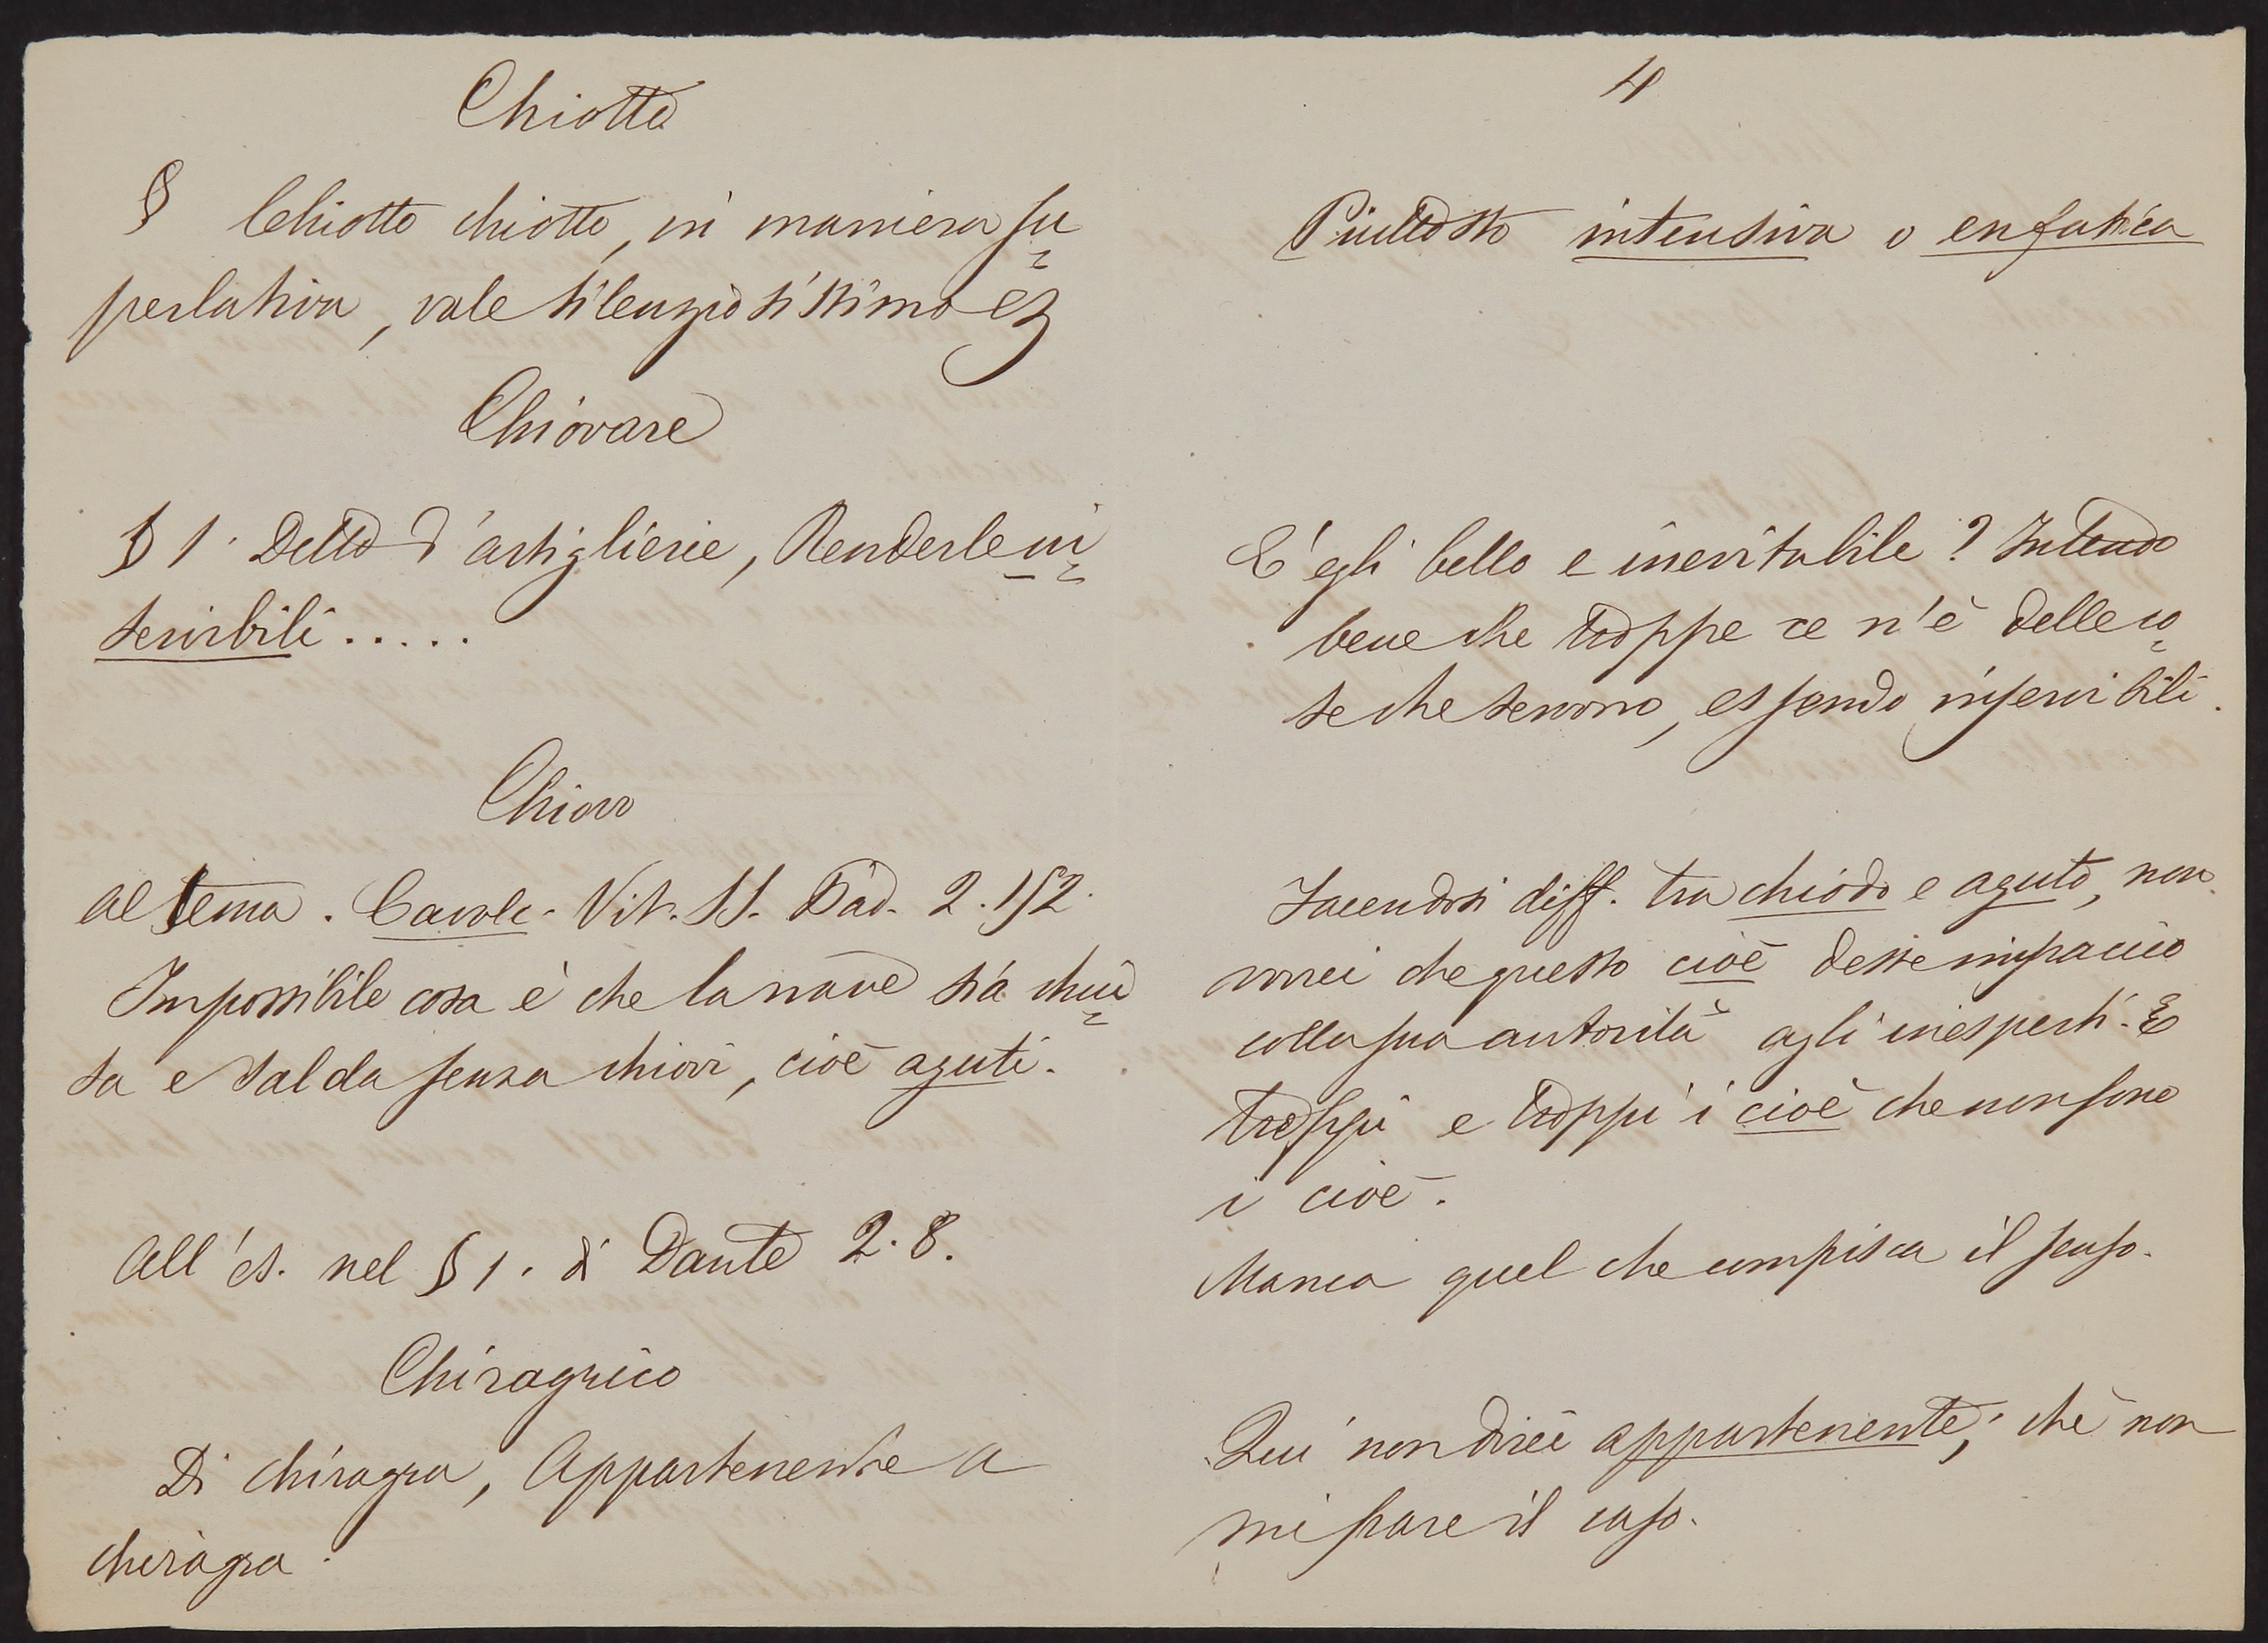 Chiotto
§ Chiotto chiotto, in maniera su=
perlativa, vale silenziosissimo ec
Chiovare
§ 1. Detto d'artiglierie, Renderle in=
servibili.....
Chiovo
Al tema. Cavalc. Vit. SS. Pad. 2. 152.
Impossibile cosa è che la nave sia chiu=
sa e salda senza chiovi, cioè aguti.
All'es. nel § 1. di Dante 2. 8.
Chiragrico
Di chiragra, Appartenente a
chiragra.
4
Piuttosto intensiva o enfatica
È egli bello e inevitabile? Intendo
bene che troppe ce n'è delle co=
se che servono, essendo inservibili.
Facendosi diff. tra chiodo e aguto, non
vorrei che questo cioè desse impaccio
colla sua autorità agli inesperti. E
troppi e troppi i cioè che non sono
i cioè.
Manca quel che compisca il senso.
Qui non direi appartenente; chè non
mi pare il caso.